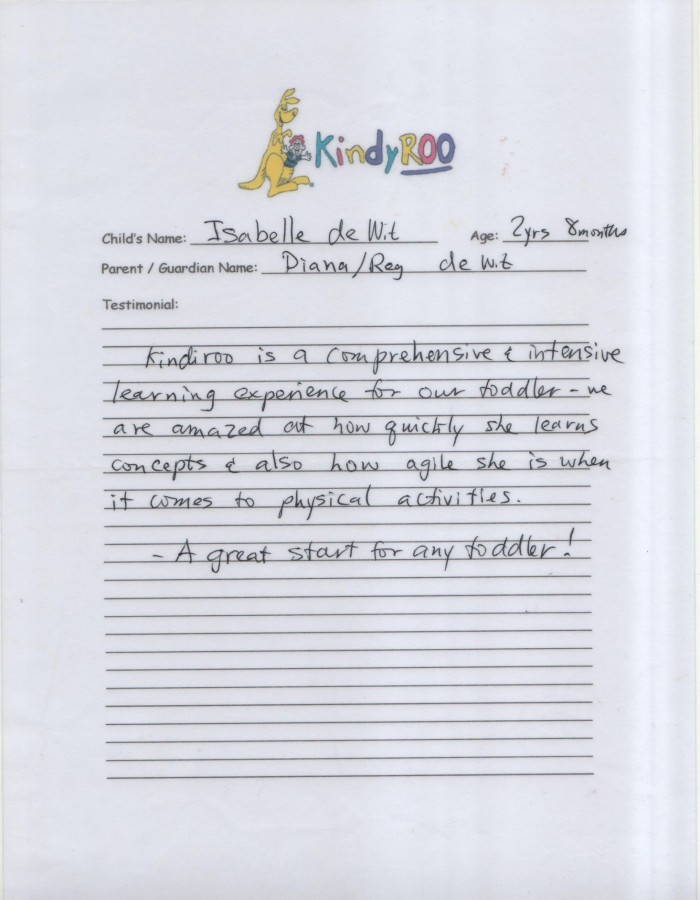 KindyROO
Child's Name: Isabelle de Wit Age: 2yrs 8months
Parent / Guardian Name: Diana/Reg de Wit
Testimonial:
Kindiroo is a comprehensive & intensive
learning experience for our toddler - we
are amazed at how quickly she learns
concepts & also how agile she is when
it comes to physical activities.
- A great start for any toddler!